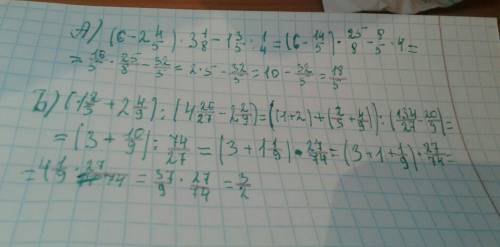 А) (6-2 4/5) · 3 1/8 - 1 3/5 : 1/4 = (6 - 14/5) · 25/8 - 8/5 · 4 =
= 16/5 · 25/8 - 32/5 = 2·5 - 32/5 = 10 - 32/5 = 18/5
Б) (1 2/3 + 2 4/9) : (4 26/27 - 2 2/9) = ((1+2) + (2/3 + 4/9)) : (134/27 - 20/9) =
= (3 + 10/9) : 74/27 = (3 + 1 1/9) · 27/74 = (3 + 1 + 1/9) · 27/74 =
= 4 1/9 · 27 74 = 37/9 · 27/74 = 3/2